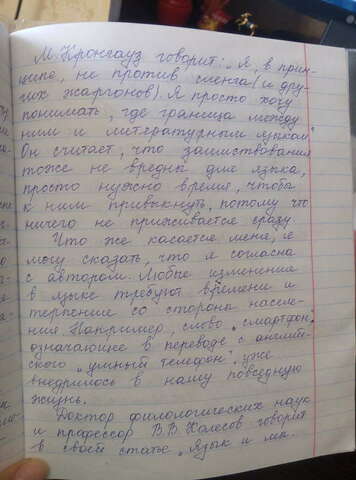 М. Кронгауз говорит: „Я, в прин-
ципе, не против сленга (и дру-
гих жаргонов). Я просто хочу
понимать, где граница между
ними и литературным языком"
Он считает, что заимствования
тоже не вредны для языка,
просто нужно время, чтобы
к ним привыкнуть, потому что
ничего не приживается сразу.
Что же касается меня, я
могу сказать, что я согласна
с автором. Любые изменение
в языке требуют времени и
терпение со стороны населе-
ния. Например, слово „смартфон",
означающее в переводе с англий-
ского „умный телефон" уже
внедрилось в нашу повседную
жизнь.
Доктор филологических наук
и профессор В.В. Колесов говорит
в своей статье „Язык и мы.